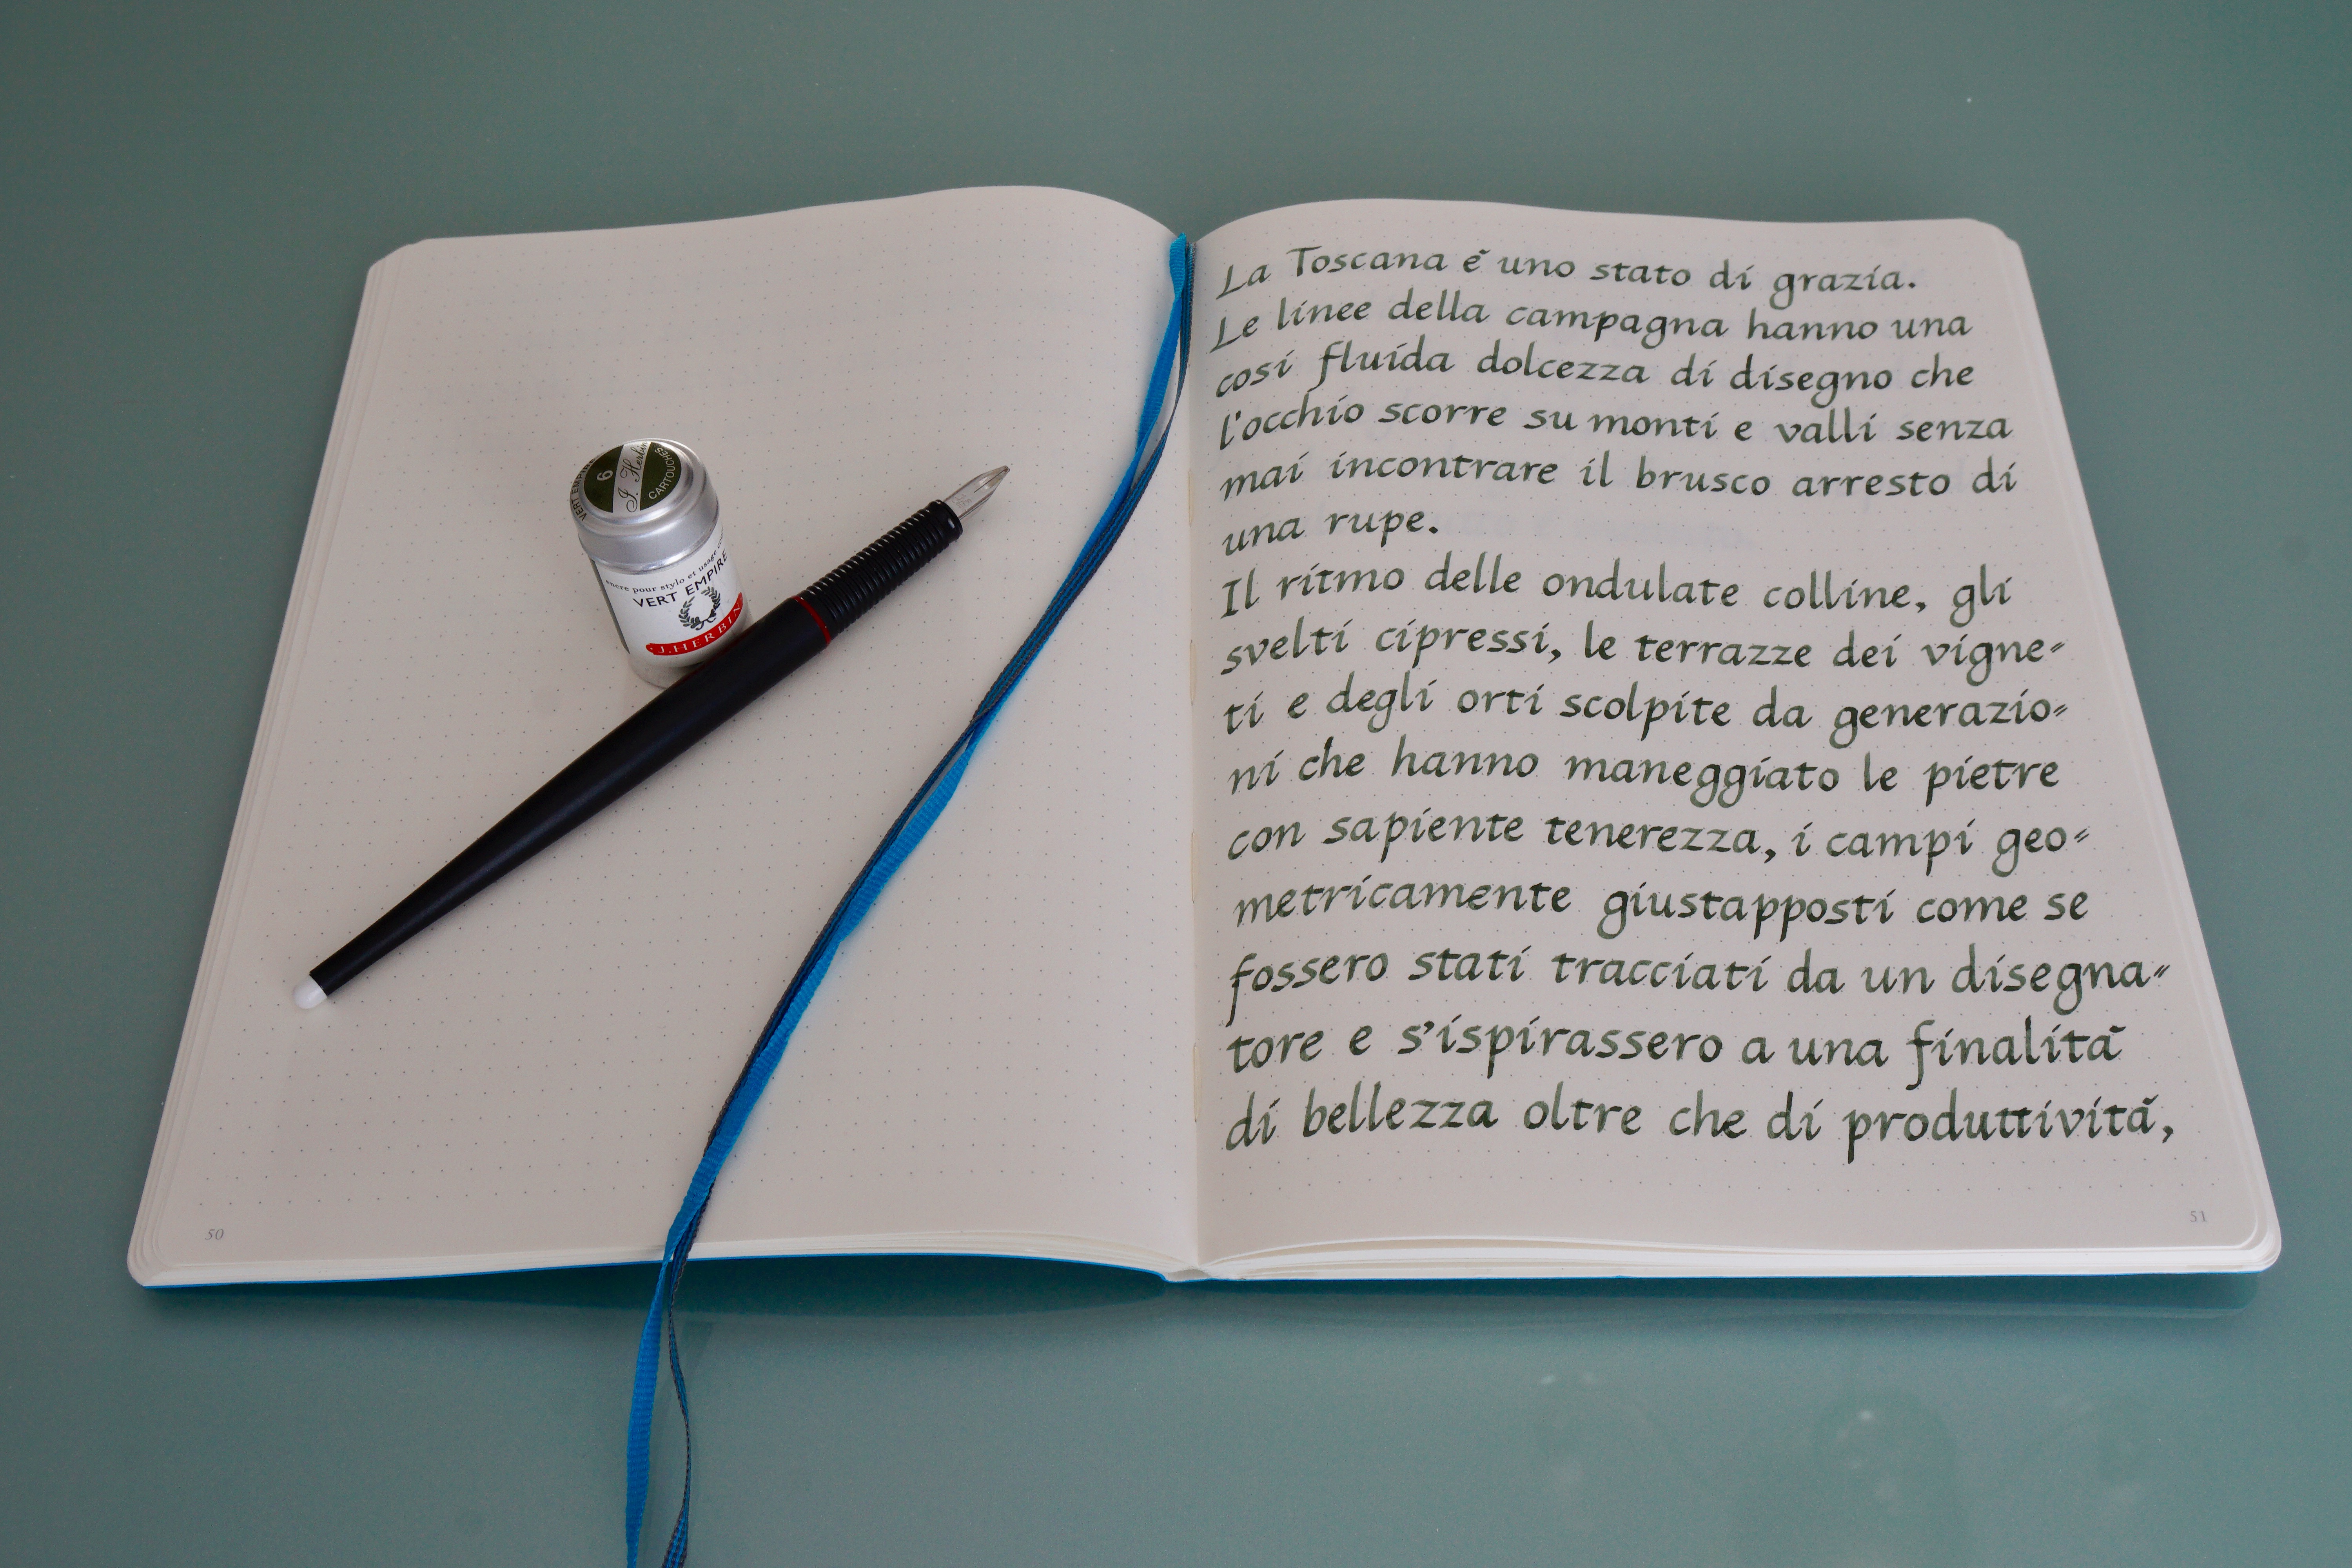 VERT EMPIRE
6
J. Herbin
CARTOUCHES
encre pour stylo et usage
VERT EMPIRE
J.HERBIN
50
La Toscana è uno stato di grazia.
Le linee della campagna hanno una
cosí fluida dolcezza di disegno che
l'occhio scorre su monti e valli senza
mai incontrare il brusco arresto di
una rupe.
Il ritmo delle ondulate colline, gli
svelti cipressi, le terrazze dei vigne=
ti e degli orti scolpite da generazio=
ni che hanno maneggiato le pietre
con sapiente tenerezza, i campi geo=
metricamente giustapposti come se
fossero stati tracciati da un disegna=
tore e s'ispirassero a una finalità
di bellezza oltre che di produttività,
51